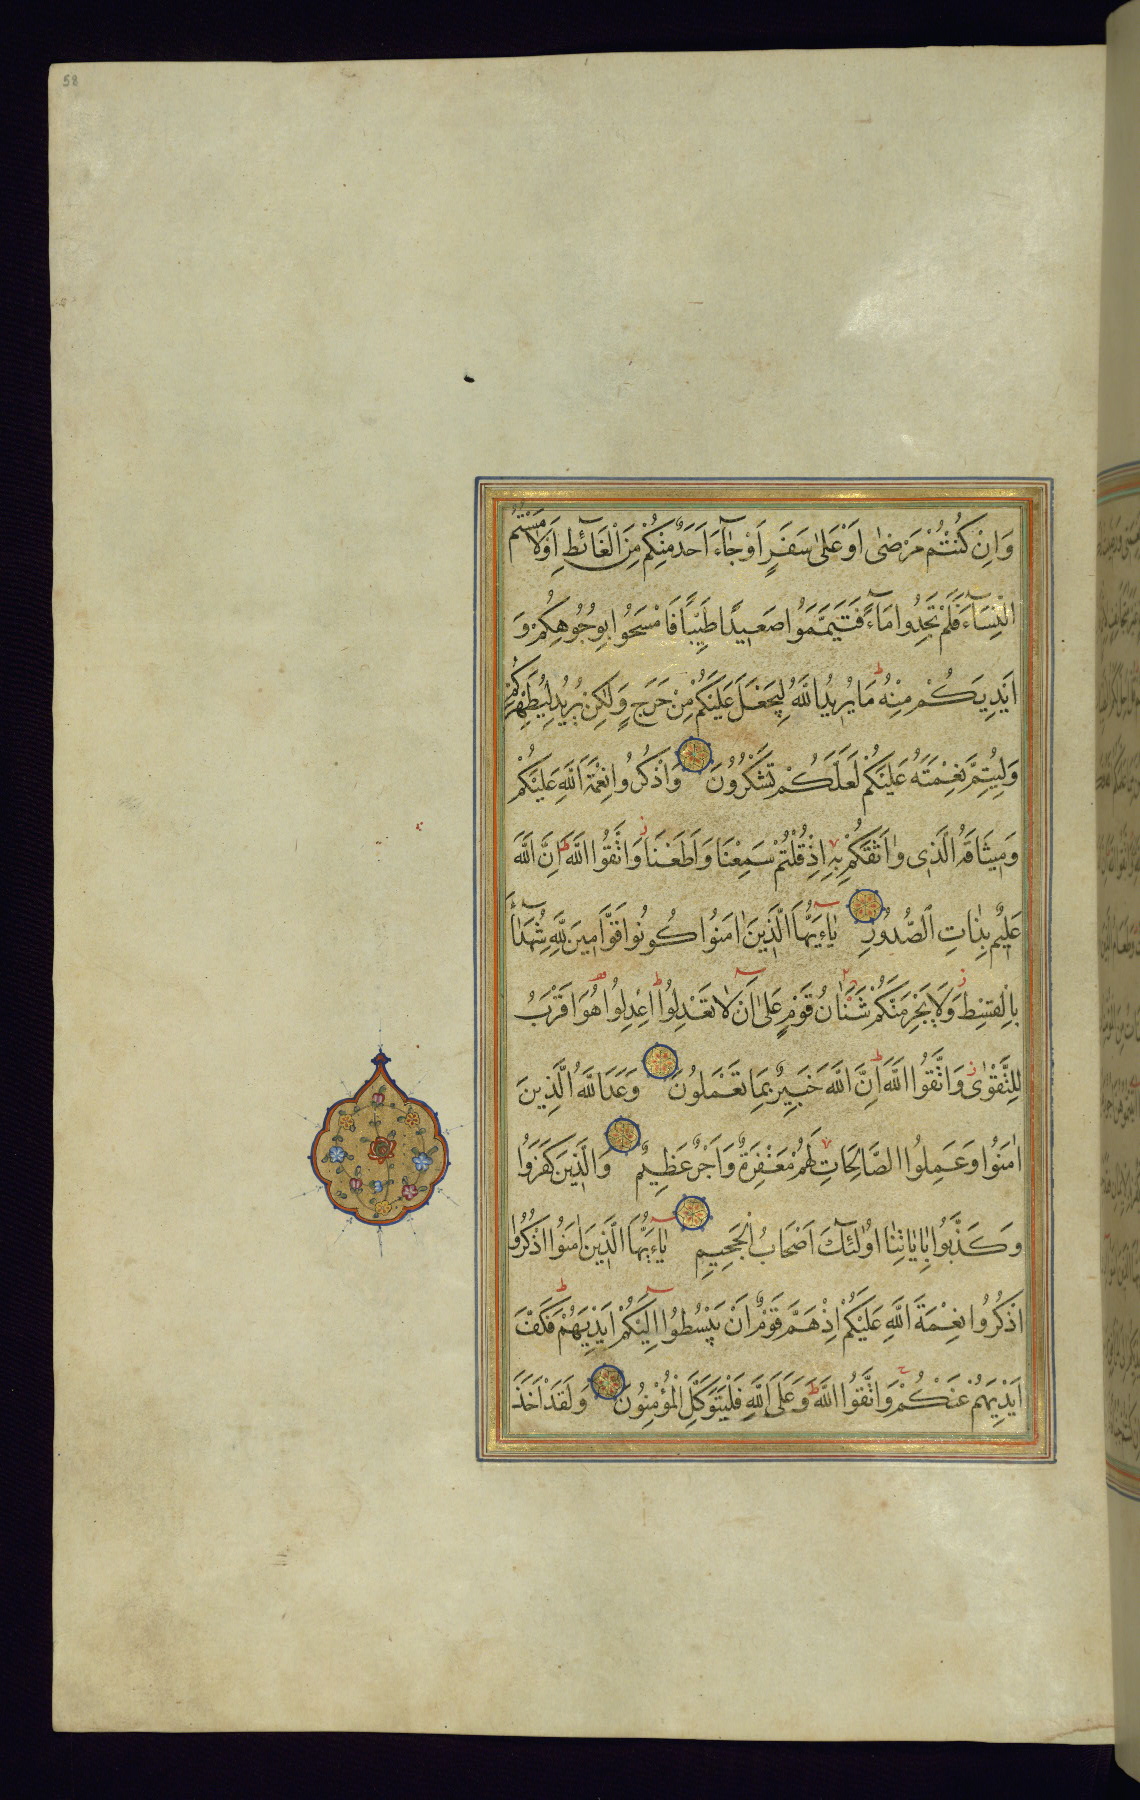 58
وَاِنْ كُنْتُمْ مَرْضىٰ اَوْ عَلىٰ سَفَرٍ اَوْ جَآءَ اَحَدٌ مِنْكُمْ مِنَ الْغَآئِطِ اَوْ لَامَسْتُمُ
النِّسَآءَ فَلَمْ تَجِدُوا مَآءً فَتَيَمَّمُوا صَعِيدًا طَيِّبًا فَامْسَحُوا بِوُجُوهِكُمْ وَ
اَيْدِيكُمْ مِنْهُ مَا يُرِيدُ اللّٰهُ لِيَجْعَلَ عَلَيْكُمْ مِنْ حَرَجٍ وَلٰكِنْ يُرِيدُ لِيُطَهِّرَكُمْ
وَلِيُتِمَّ نِعْمَتَهُ عَلَيْكُمْ لَعَلَّكُمْ تَشْكُرُونَ وَاذْكُرُوا نِعْمَةَ اللّٰهِ عَلَيْكُمْ
وَمِيثَاقَهُ الَّذِى وٰاثَقَكُمْ بِهِ اِذْ قُلْتُمْ سَمِعْنَا وَاَطَعْنَا وَاتَّقُوا اللّٰهَ اِنَّ اللّٰهَ
عَلِيمٌ بِذٰاتِ الصُّدُورِ يٰاءَيُّهَا الَّذِينَ اٰمَنُوا كُونُوا قَوَّامِينَ لِلّٰهِ شُهَدٰآءَ
بِالْقِسْطِ وَلَا يَجْرِمَنَّكُمْ شَنَاٰنُ قَوْمٍ عَلىٰ اَنْ لٰا تَعْدِلُوا اعْدِلُوا هُوَ اَقْرَبُ
لِلتَّقْوٰى وَاتَّقُوا اللّٰهَ اِنَّ اللّٰهَ خَبِيرٌ بِمَا تَعْمَلُونَ وَعَدَ اللّٰهُ الَّذِينَ
اٰمَنُوا وَعَمِلُوا الصَّالِحَاتِ لَهُمْ مَغْفِرَةٌ وَاَجْرٌ عَظِيمٌ وَالَّذِينَ كَفَرُوا
وَكَذَّبُوا بِاٰيَاتِنٰا اُولٰئِكَ اَصْحَابُ الْجَحِيمِ يٰاءَيُّهَا الَّذِينَ اٰمَنُوا اذْكُرُوا
اذْكُرُوا نِعْمَةَ اللّٰهِ عَلَيْكُمْ اِذْ هَمَّ قَوْمٌ اَنْ يَبْسُطُوا اِلَيْكُمْ اَيْدِيَهُمْ فَكَفَّ
اَيْدِيَهُمْ عَنْكُمْ وَاتَّقُوا اللّٰهَ وَعَلَى اللّٰهِ فَلْيَتَوَكَّلِ الْمُؤْمِنُونَ وَلَقَدْ اَخَذَ